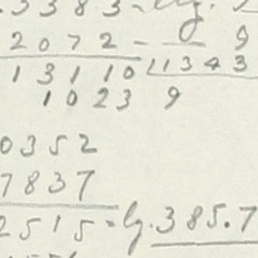 3383 - lg.
2072 - 9
13110 11343
1023 9
0352
7837
2515 = lg. 385.7